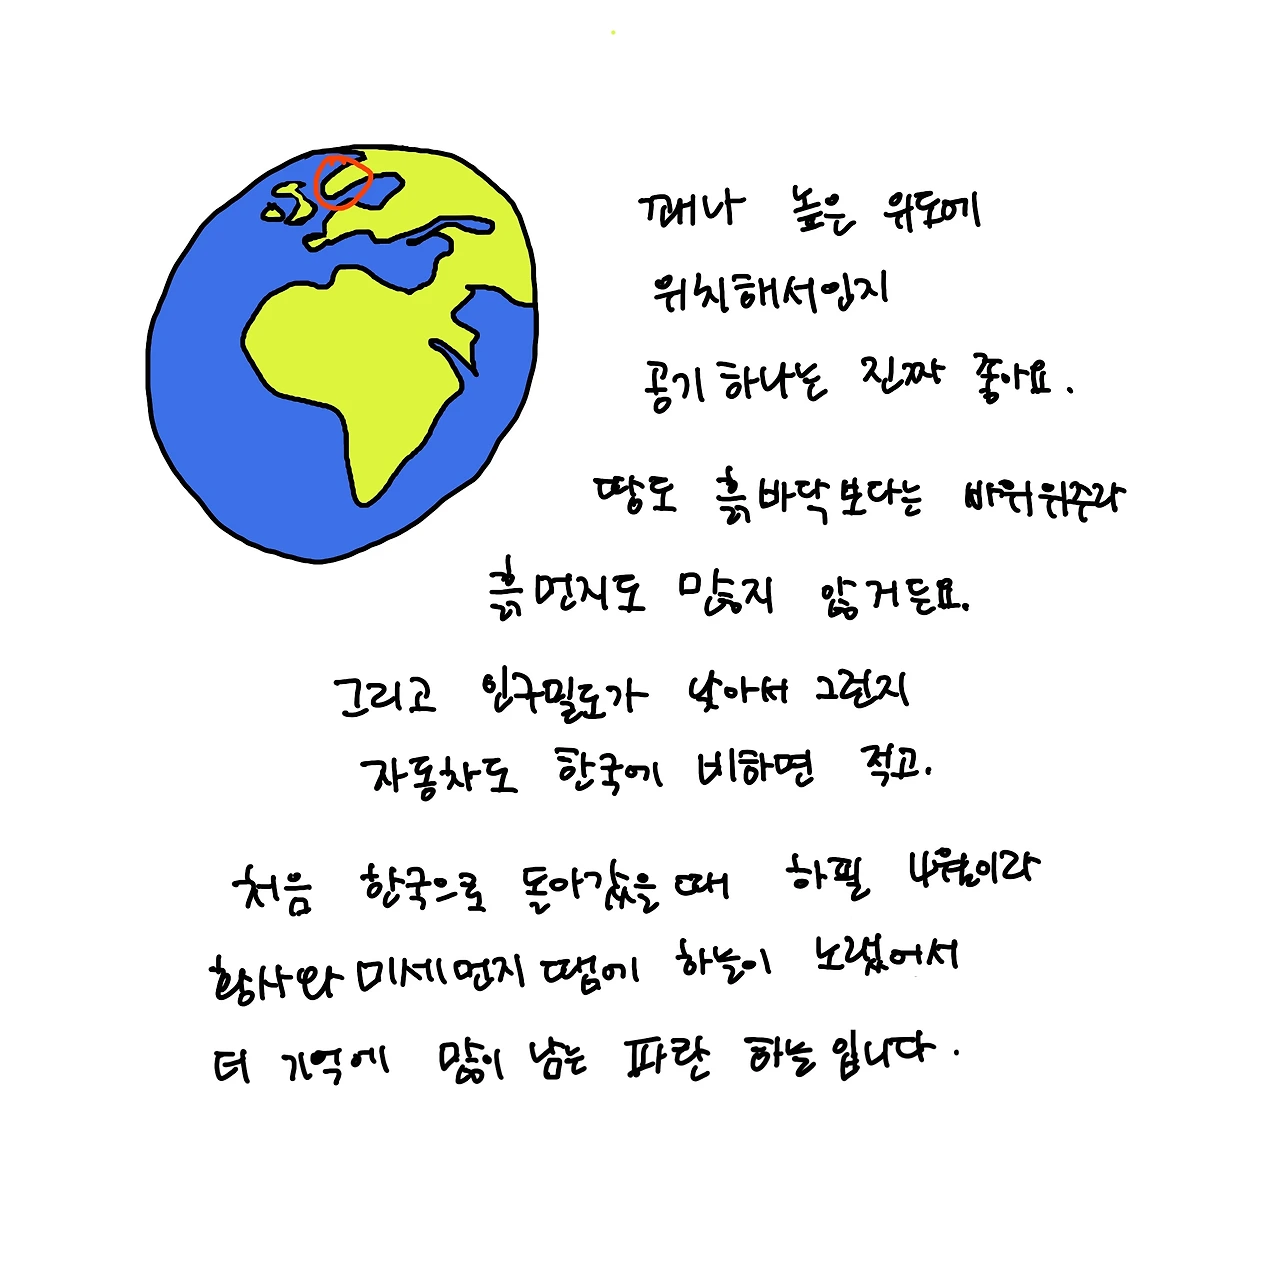 꽤나 높은 위도에
위치해서인지
공기 하나는 진짜 좋아요.
땅도 흙바닥보다는 바위위주라
흙먼지도 많지 않거든요.
그리고 인구밀도가 낮아서 그런지
자동차도 한국에 비하면 적고.
처음 한국으로 돌아갔을 때 하필 4월이라
황사와 미세먼지 땜에 하늘이 노랬어서
더 기억에 많이 남는 파란 하늘입니다.